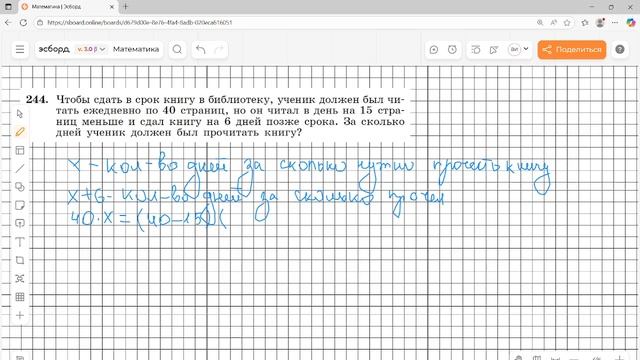 Математика | Эсборд
эсборд v. 3.0 β Математика Поделиться
244. Чтобы сдать в срок книгу в библиотеку, ученик должен был чи-
тать ежедневно по 40 страниц, но он читал в день на 15 стра-
ниц меньше и сдал книгу на 6 дней позже срока. За сколько
дней ученик должен был прочитать книгу?
x – кол-во дней за сколько нужно прочесть книгу
x+6 – кол-во дней за сколько прочел
40·x=(40–15)(